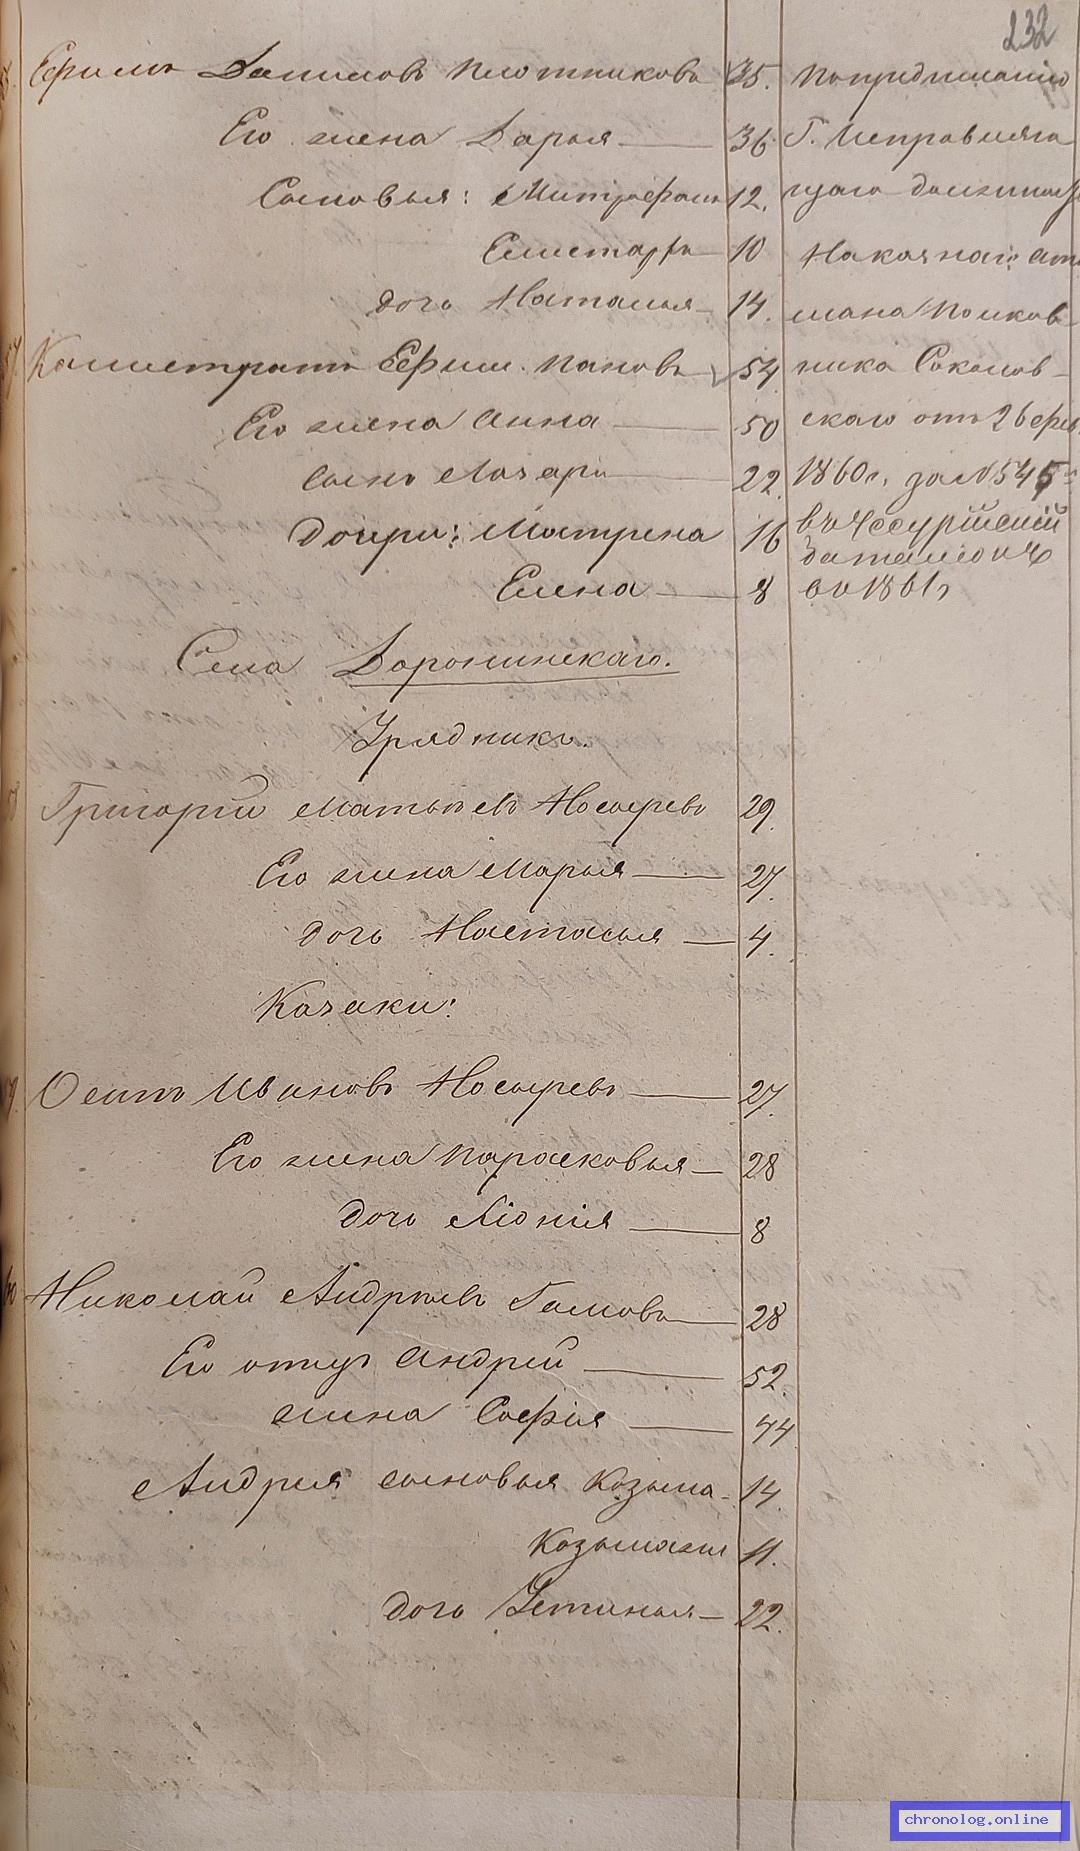 232
Ефимъ Даниловъ Плотниковъ 35. По предписанію
Его жена Дарья 36 Г. Исправляю
Сыновья: Митрофанъ 12. щаго должность
Елистархъ 10 Наказнаго: ата
дочь Наталья 14. мана Полков
Калистратъ Ефим. Пановъ 54 ника Соколов
Его жена Анна 50 скаго отъ 26 фев.
сынъ Лазарь 22. 1860 г. за № 545
Дочери: Матрена 16 въ Уссурійскій
баталіонъ
Елена 8 въ 1861 г.
Села Доронинскаго.
Урядникъ.
58 Григорій Матвѣевъ Носыревъ 29.
Его жена Марья 27.
дочь Настасья 4.
Казаки:
59. Осипъ Ивановъ Носыревъ 27.
Его жена Парасковья 28
дочь Хіонія 8
60 Николай Андрѣевъ Гамовъ 28
Его отецъ Андрей 52.
жена Софія 44
Андрея сыновья Козьма 14.
11.
дочь Устинья 22.
chronolog.online